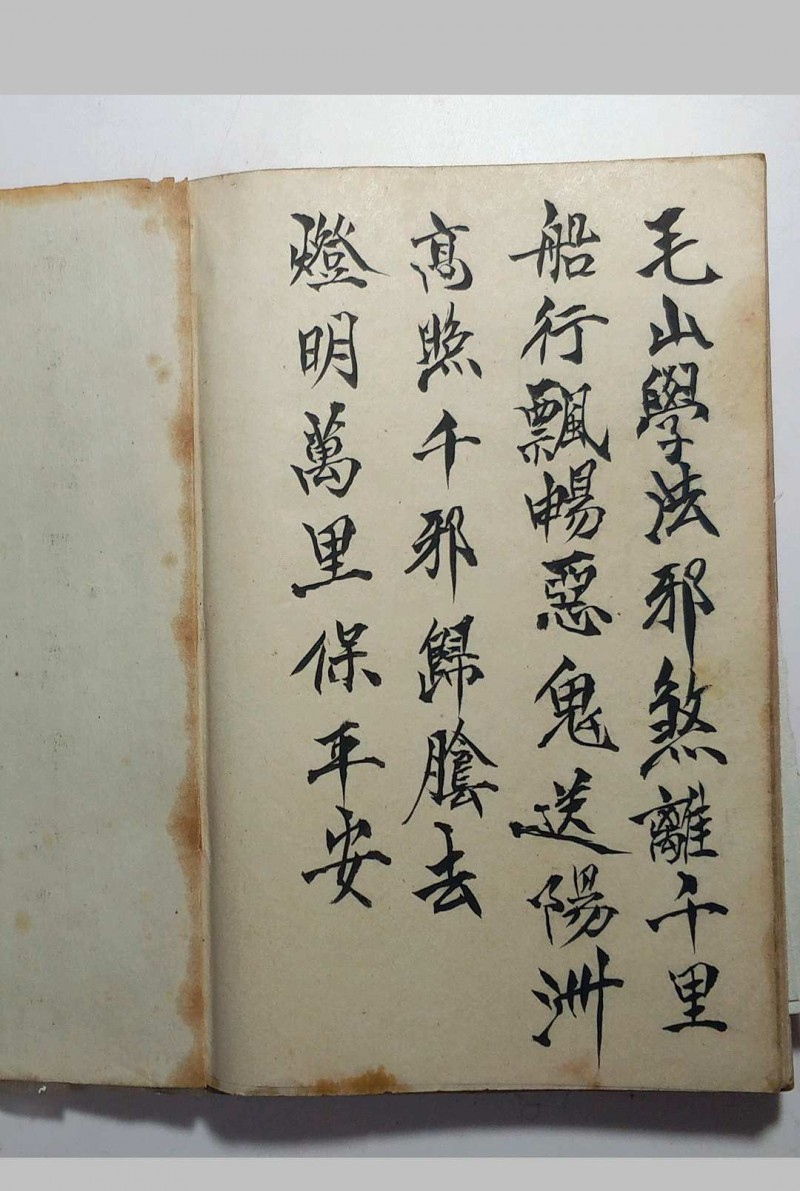 毛山學法邪煞離千里
船行飄暢惡鬼送陽洲
高照千邪歸陰去
燈明萬里保平安